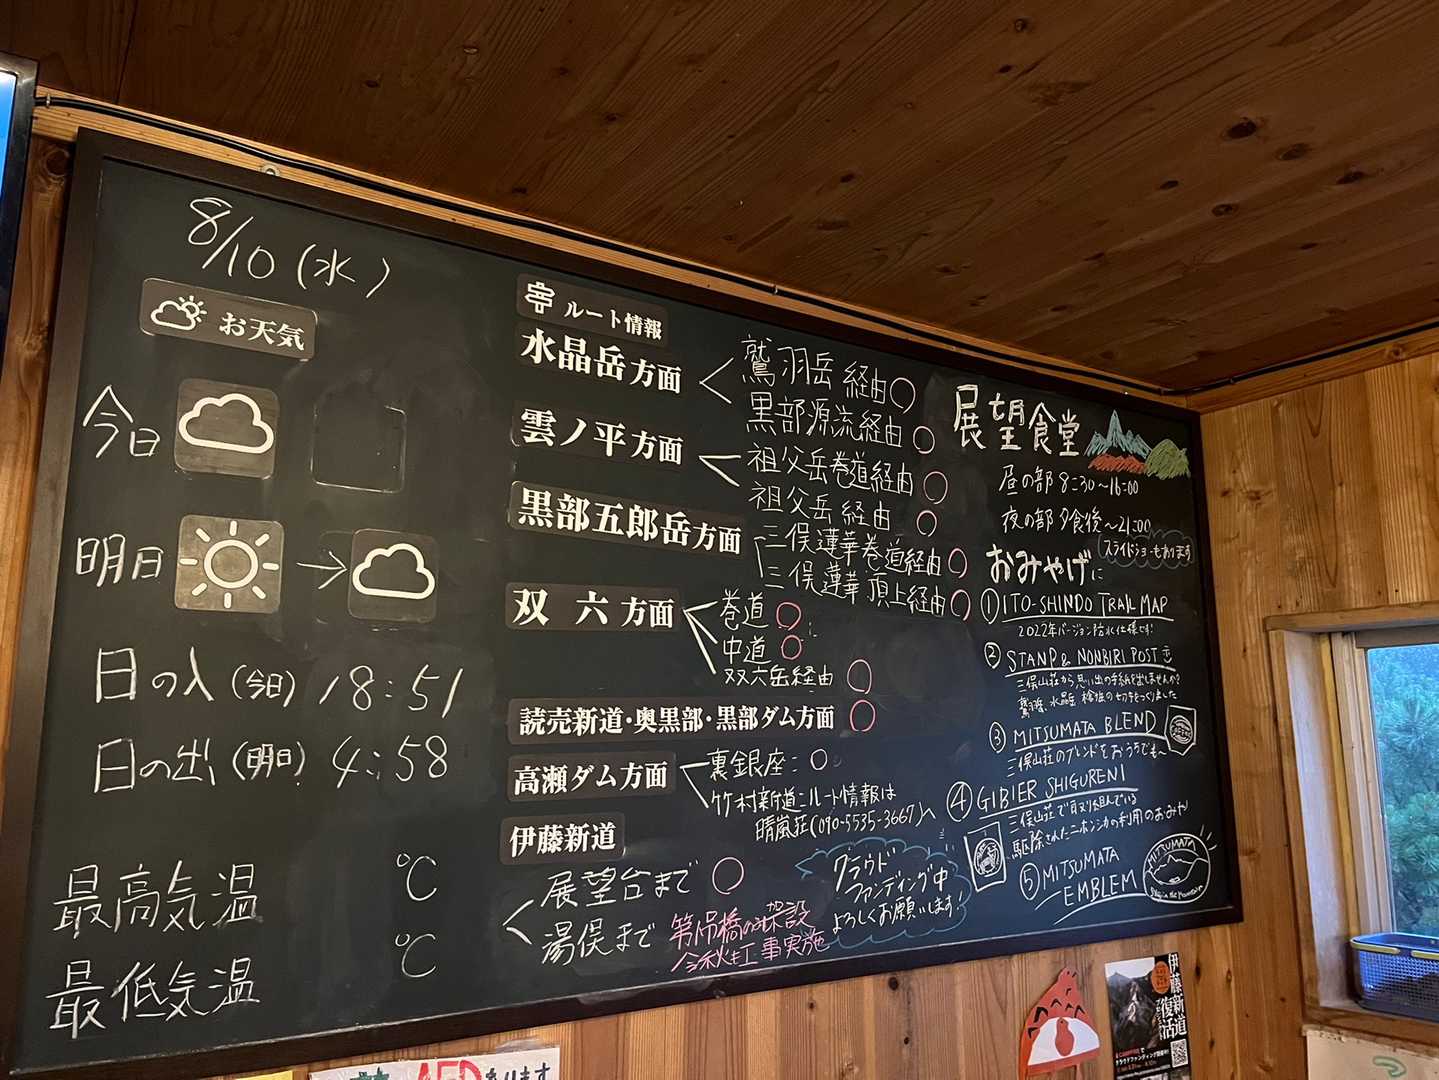 8/10(水)
お天気
今日
明日
→
日の入(今日) 18:51
日の出(明日) 4:58
最高気温 ℃
最低気温 ℃
ルート情報
水晶岳方面
鷲羽岳経由○
黒部源流経由○
雲ノ平方面
祖父岳巻道経由○
祖父岳経由○
黒部五郎岳方面
三俣蓮華巻道経由○
三俣蓮華頂上経由○
双六方面
巻道○
中道○
双六岳経由○
読売新道・奥黒部・黒部ダム方面○
高瀬ダム方面
裏銀座:○
竹村新道:ルート情報は
晴嵐荘(090-5535-3667)へ
伊藤新道
展望台まで○
湯俣まで
今秋 工事実施
クラウド
ファンディング中
よろしくお願いします!
展望食堂
昼の部 8:30~16:00
夜の部 夕食後~21:00
スライドショーもあります
おみやげに
①ITO-SHINDO TRAIL MAP
2022年バージョン防水仕様です!
②STANP & NONBIRI POST
三俣山荘から思い出の手紙を出しませんか?
③MITSUMATA BLEND
三俣山荘のブレンドをおうちでも~
④GIBIER SHIGURENI
三俣山荘で取り組んでいる
駆除されたニホンジカの利用のおみや
⑤MITSUMATA
EMBLEM
MITSUMATA
AEDあります
伊藤新道
復活